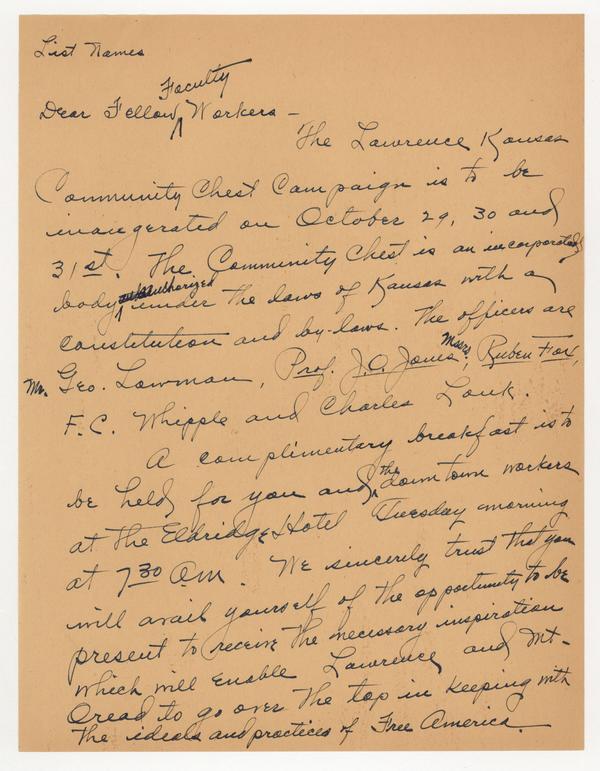 List Names
Faculty
Dear Fellow ^ Workers —
The Lawrence Kansas
Community Chest Campaign is to be
inaugerated on October 29, 30 and
31st. The Community Chest is an incorporated
body ^ authorized under the laws of Kansas with a
constitution and by-laws. The officers are
Mr. Geo. Lowman, Prof. J.O. Jones, Messrs. Ruben Fox,
F.C. Whipple and Charles Louk.
A complimentary breakfast is to
be held for you and ^ the downtown workers
at the Eldridge Hotel Tuesday morning
at 7 30 A.M. We sincerely trust that you
will avail yourself of the opportunity to be
present to receive the necessary inspiration
which will enable Lawrence and Mt-
Oread to go over the top in keeping with
the ideals and practices of Free America.